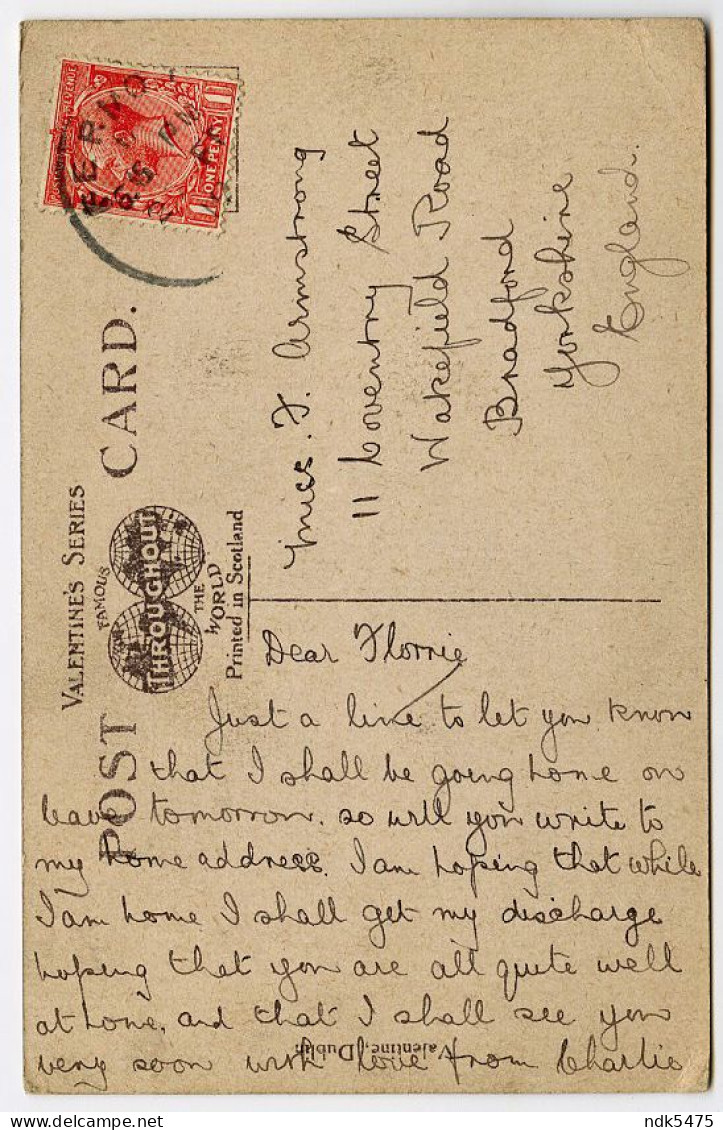 POST CARD.
VALENTINE'S SERIES
FAMOUS
THROUGHOUT
THE
WORLD
Printed in Scotland
ONE PENNY
Miss. F. Armstrong
11 Coventry Street
Wakefield Road
Bradford
Yorkshire
England.
Dear Florrie
Just a line to let you know
that I shall be going home on
leave tomorrow. so will you write to
my home address. I am hoping that while
I am home I shall get my discharge
hoping that you are all quite well
at home, and that I shall see you
very soon with love from Charlie
Valentine, Dublin
ndk5475